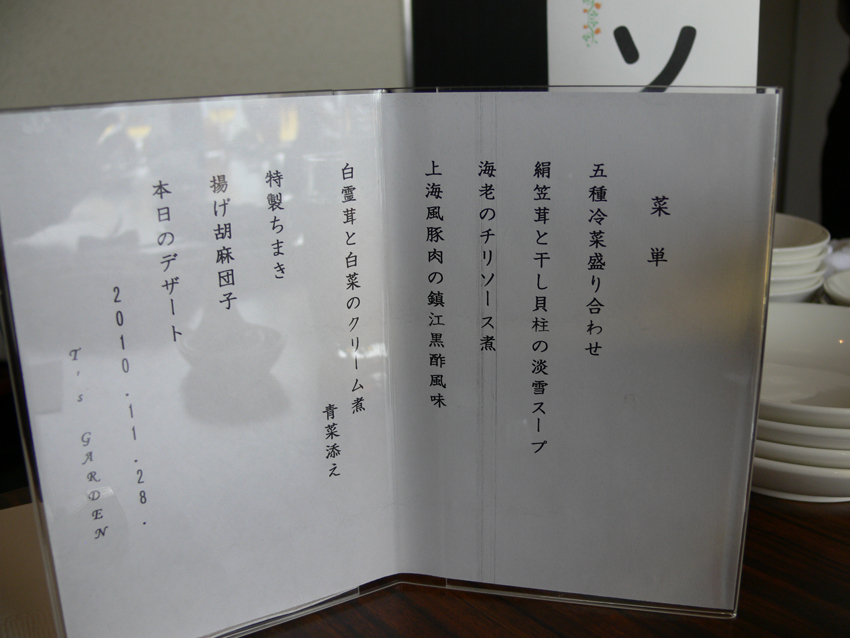 菜単
五種冷菜盛り合わせ
絹笠茸と干し貝柱の淡雪スープ
海老のチリソース煮
上海風豚肉の鎮江黒酢風味
白霊茸と白菜のクリーム煮
青菜添え
特製ちまき
揚げ胡麻団子
本日のデザート
2010.11.28.
T's GARDEN
ソ